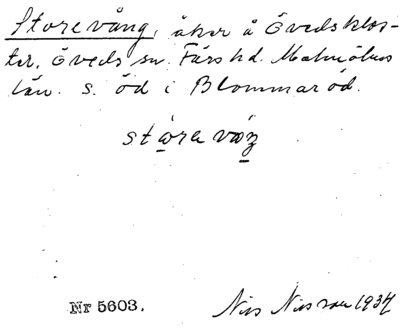 Storevång, åker å Övedsklos-
ter, Öveds sn. Färs hd. Malmöhus
län. S. öd i Blommaröd.
stårə våŋ
Nr 5603.
Nils Nilsson 1934